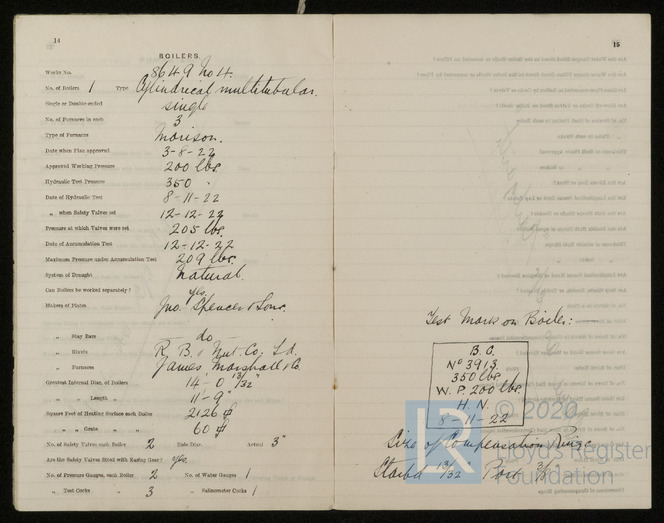 14
BOILERS.
Works No. 8649 No 4.
No. of Boilers 1 Type Cylindrical multitubular.
Single or Double-ended single
No. of Furnaces in each 3
Type of Furnaces Morison.
Date when Plan approved 3-8-22
Approved Working Pressure 200 lbs.
Hydraulic Test Pressure 350 "
Date of Hydraulic Test 8-11-22
" when Safety Valves set 12-12-22
Pressure at which Valves were set 205 lbs.
Date of Accumulation Test 12-12-22
Maximum Pressure under Accumulation Test 209 lbs.
System of Draught Natural.
Can Boilers be worked separately? yes.
Makers of Plates Jno. Spencer & Sons.
" Stay Bars do
" Rivets R. B. & Nut. Co. Ld.
" Furnaces James Marshall & Co.
Greatest Internal Diam. of Boilers 14 - 0 13/32"
" " Length " 11 - 9"
Square Feet of Heating Surface each Boiler 2126
" " Grate " " 60
No. of Safety Valves each Boiler 2 Rule Diam. Actual 3"
Are the Safety Valves fitted with Easing Gear? yes.
No. of Pressure Gauges, each Boiler 2 No. of Water Gauges 1
" Test Cocks " 3 " Salinometer Cocks 1
15
Test Mark on Boiler:
B.C.
No 3913
350 lbs
W.P. 200 lbs.
H. N.
8-11-22
Size of Compensation Rings
Starbd 13/32 Port
© 2020
Lloyd's Register
Foundation
LR